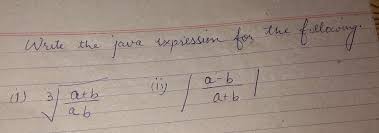 Write the java expression for the following.
(i) ∛((a+b)/(ab)) (ii) |(a-b)/(a+b)|